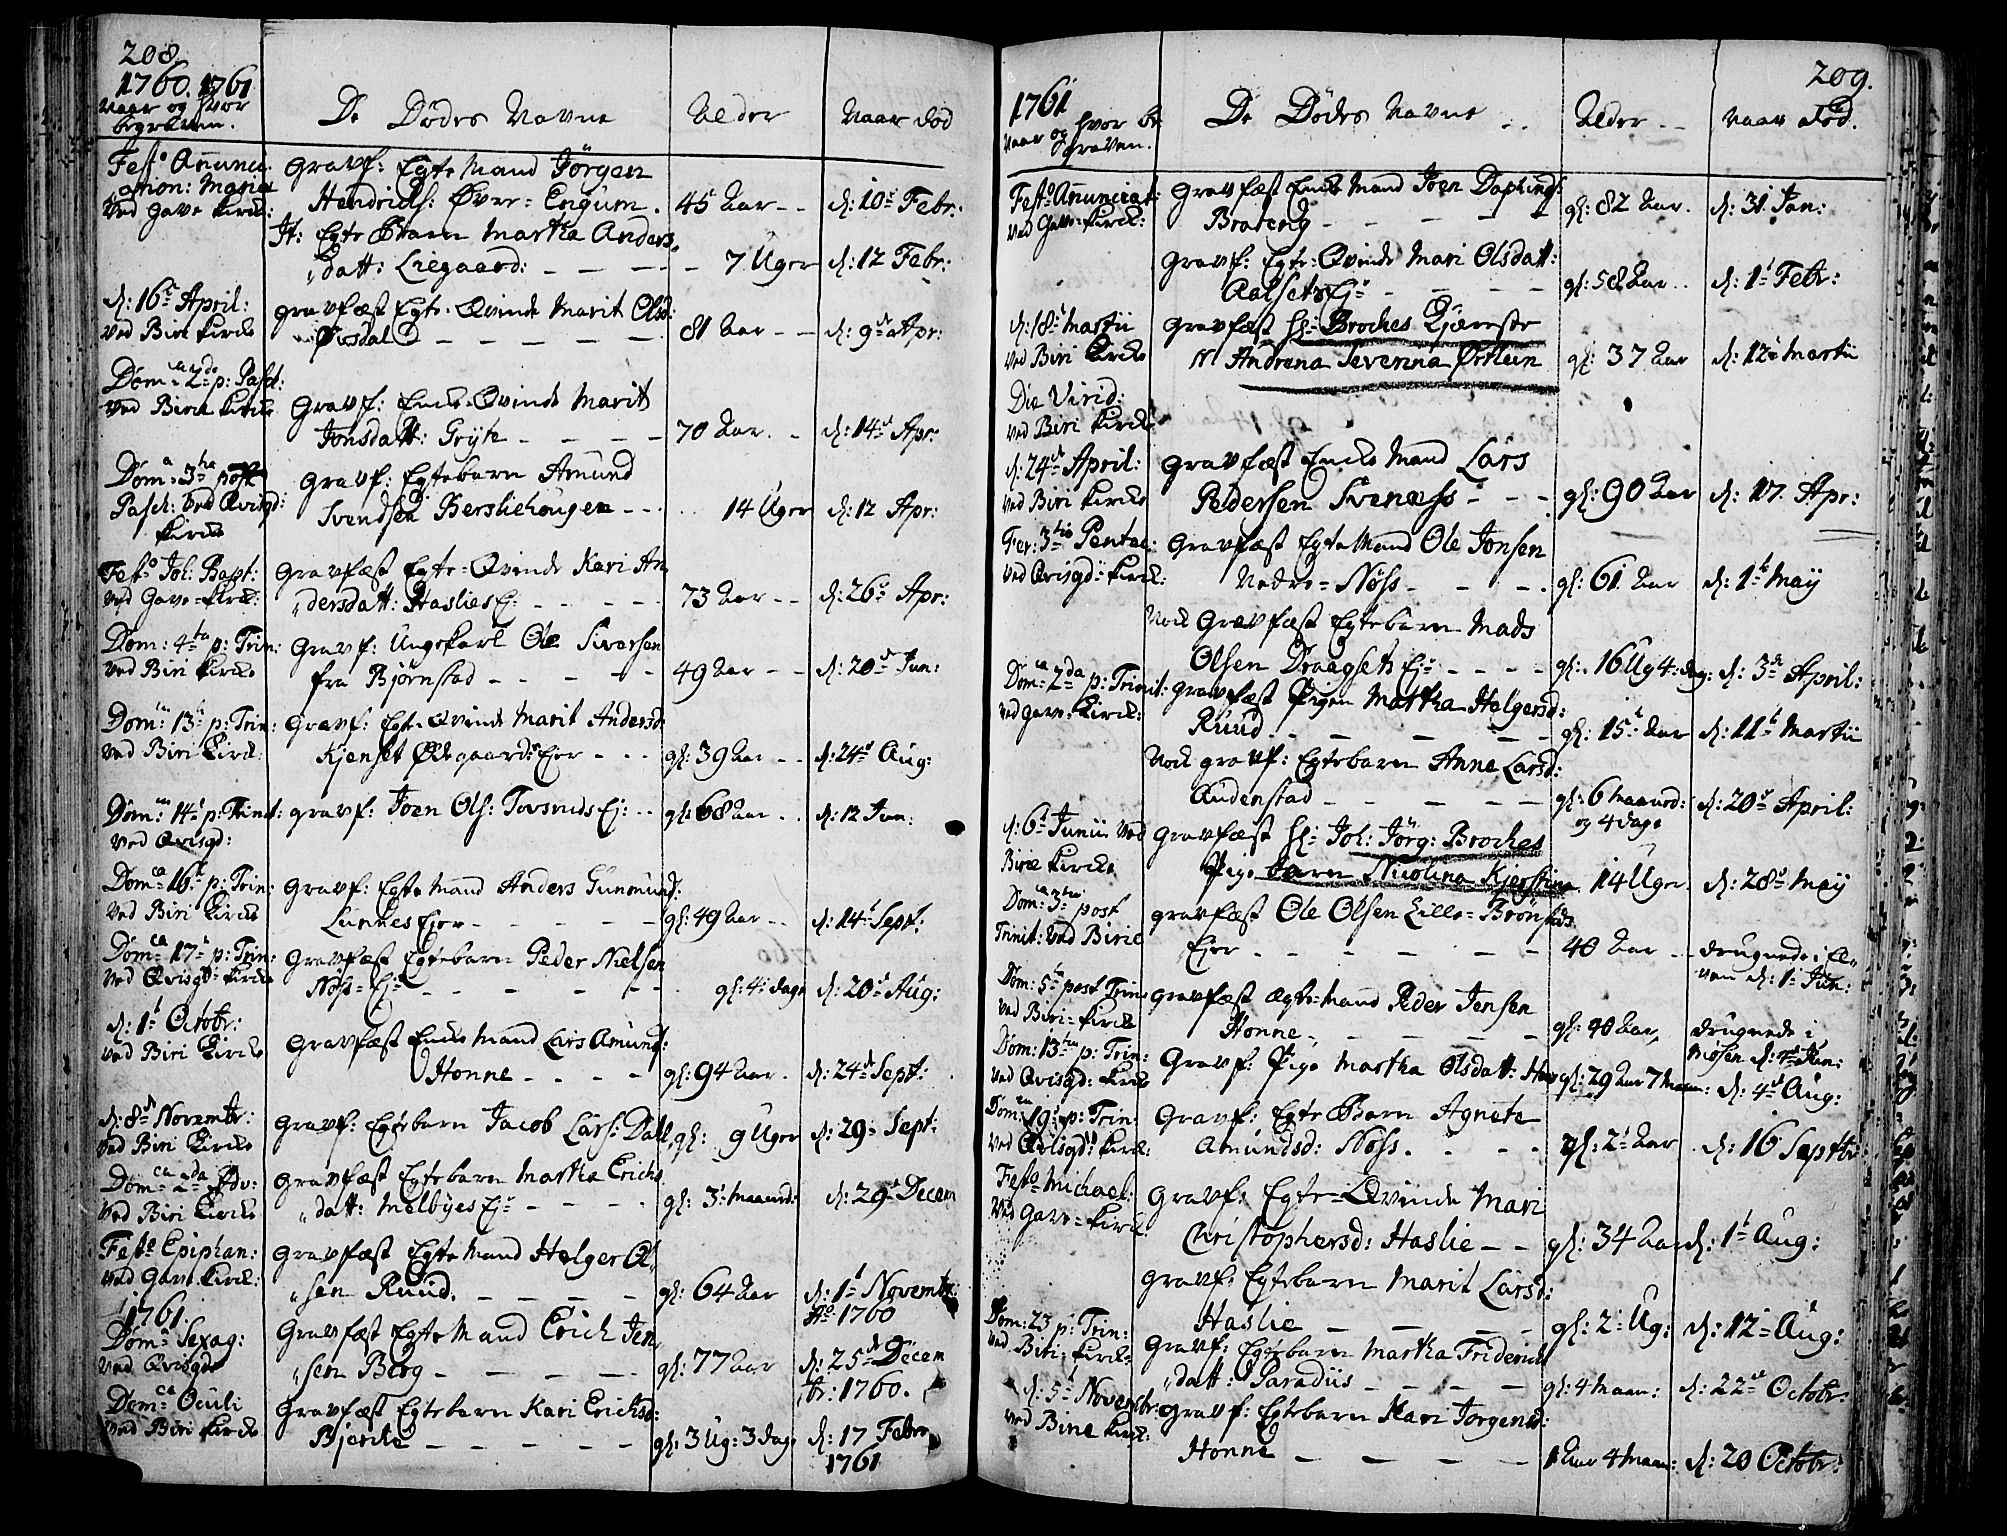 208.
1760. 1761
Naar og hvor
begraven.
De Dødes Navne
Alder
Naar død
Festo Anunci
ation: Mariæ
ved Gave Kirck:
Gravf: Egte Mand Jörgen
Hendrichs: Øver-Engum.
45 Aar - -
d: 10 Febr:
It: Egte Barn Martha Anders
datt: Liegaard: - - - -
7 Uger
d: 12 Febr:
d: 16 April:
ved Biri Kircke
Gravfæst Egte-Qvinde Marit Olsd:
Øisdal - - - - -
81 Aar - -
d: 9de Apr:
Dom: 2da p: Pasch:
ved Birie Kircke
Gravf: Encke-Qvinde Marit
Jonsdatt: Gryte - - - -
70 Aar. -
d: 14 Apr:
Dom: 3tia post
Pasch: ved Qvisgd:
Kircke
Gravf: Egtebarn Amund
Svendsen Berstiehaugen - - -
14 Uger
d: 12 Apr:
Festo Joh: Bapt:
ved Gave-Kirck:
Gravfæst Egte-Qvinde Kari An
dersdatt: Haslies Ej: - - - -
73 Aar - -
d: 26 Apr:
Dom: 4ta p: Trin:
ved Biri Kircke
Gravf: Ungekarl Ole Siversen
fra Bjørnstad - - - - -
49 Aar - -
d: 20 Jun:
Dom: 13 p: Trin:
ved Biri Kirck:
Gravf: Egte-Qvinde Marit Andersd:
Kjenset Ødegaards Ejer - - -
gl: 39 Aar - -
d: 24 Aug:
Dom: 14 p: Trinit:
ved Qvisgd:
gravf: Joen Ols: Tovsruds Ej: - -
gl: 68 Aar - .
d: 12 Jun:
Dom: 16 p: Trin:
ved Biri Kircke
Gravf: Egte Mand Anders Gunmund:
Lunnes Ejer - - - - -
gl: 49 Aar - -
d: 14 Sept:
Dom: 17 p: Trin:
ved Qvisgd: Kircke
Gravfæst Egtebarn Peder Nielsen
Nøss-Ej: - - - - - -
gl: 4 dage
d: 20 Aug:
d: 1t Octobr:
ved Biri Kircke
Gravfæst Encke Mand Lars Amund:
Honne - - - -
gl: 94 Aar .
d: 24 Sept:
d: 8de Novembr:
ved Biri Kircke
Gravf: Egtebarn Jacob Lars: Dall
gl: 9 Uger
d: 29 Sept:
Dom: 2da Adv:
ved Biri Kircke
Gravfæst Egtebarn Martha Erichs
datt: Melbyes Ej: - - - -
gl: 3 Maaned:
d: 29 Decem
Festo Epiphan:
ved Gave Kirck:
Gravfæst Egte Mand Helger Ol
sen Ruud. - - - -
gl: 64 Aar
d: 1t Novembr:
Ao 1760
1761.
Dom: Sexag:
ved Qvisgd:
Gravfæst Egte Mand Erich Jen
sen Berg - - - - -
gl: 77 Aar
d: 25 Decem
br: 1760.
Dom: Oculi
ved Biri Kircke
Gravfæst Egtebarn Kari Ericksd:
Bjercke - - - - -
gl: 3 Ug: 3 dage
d: 17 Febr
1761
209.
1761
Naar og hvor be
graven.
De Dødes Navne . .
Alder - -
Naar død.
Festo Anunciat:
ved Gave-Kirck:
Gravfæst Encke Mand Joen
Brateng - - - -
gl: 82 Aar.
d: 31 Jan:
Gravf: Egte-Qvinde Mari Olsdatt:
Aalsets Ej: - - - -
gl: 58 Aar . .
d: 1t Febr:
d: 18 Martii
ved Biri Kircke
Gravfæst Hr: Broches Kjæreste
Mme Andrena Severina Ørtlein
gl: 37 Aar
d: 12 Martii
Die Virid:
ved Biri Kircke
d: 24 April:
ved Biri Kircke
Gravfæst Encke Mand Lars
Pedersen Svenæss - - -
gl: 90 Aar
d: 17. Apr:
Fer: 3tia Pentec:
ved Qvisgd: Kirck:
Gravfæst Egte Mand Ole Jonsen
Nedre-Nöss - - - -
gl: 61 Aar
d: 1t Maij
Nock Gravfæst Egtebarn Mads
Olsen Draagsets Ej: - - -
gl: 16 Ug 4 dag:
d: 3de April:
Dom: 2da p: Trinit:
ved Gave-Kirck:
gravfæst Pigen Martha Helgersd:
Ruud - - - - -
gl: 15 Aar
d: 11 Martii
Nock gravf: Egtebarn Anne Larsd:
Audenstad - - - - -
gl: 6 Maaned:
og 4 dage
d: 20 April:
d: 6 Junii ved
Birie Kircke
Gravfæst Hr: Joh: Jörg: Broches
Pige barn Nicolina Kjerstina
14 Uger.
d: 28 Maij
Dom: 3tia post
Trinit: ved Birie
gravfæst Ole Olsen Lille-Brönstads
Ejer - - - - - -
40 Aar - -
drugnede i El
ven d: 1 Jun:
Dom: 5 post Trin:
ved Biri-Kircke
gravfæst Ægte-Mand Peder Jensen
Honne - - - - -
gl: 40 Aar,
drugnede i
Mösen d: 4 Jun:
Dom: 13 p: Trin:
ved Qvisgd: Kirck
Gravf: Pige Martha Olsdatt:
gl: 29 Aar 7 Maan:
d: 4 Aug:
Dom: 19 p: Trin:
ved Qvisgd: Kirck:
Gravf: Egte Barn Agnete
Amundsd: Nöss. - - -
gl: 2 Aar
d: 16 Septbr
Festo Michael:
ved Gave-Kirck:
Gravf: Egte-Qvinde Mari
Christophersd: Haslie - -
gl: 34 Aar
d: 1t Aug:
Gravf: Egtebarn Marit Larsd:
Haslie - - - -
gl: 2 Ug:
d: 12 Aug:
Dom: 23 p: Trin:
ved Biri-Kirck-
Gravf: Egtebarn Martha Friderichs
datt: Paradiis - - - -
gl: 4 Maan:
d: 22 Octobr:
d: 5 Novembr:
ved Birie Kirck:
Gravf: Egtebarn Kari Jorgensd:
Honne - - - -
1 Aar 4 Maan:
d: 20 Octobr: